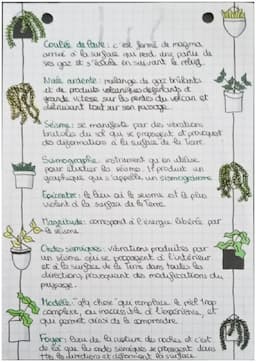 Coulée de lave : c'est formé de magma
arrivé à la surface qui perd une partie de
ses gaz et s'écoule en suivant le relief.
Nuée ardente : mélange de gaz brûlants
et de produits volcaniques déferlants à
grande vitesse sur les pentes du volcan et
détruisant tout sur son passage.
Séisme : se manifeste par des vibrations
brutales du sol qui se propagent et provoquent
des déformations à la surface de la Terre.
Sismographe : instrument qu'on utilise
pour étudier les séismes. Il produit un
graphique qui s'appelle un sismogramme.
Epicentre : le lieu où le séisme est le plus
violent à la surface de la Terre.
Magnitude : correspond à l'énergie libérée par
le séisme.
Ondes sismiques : vibrations produites par
un séisme qui se propagent à l'intérieur
et à la surface de la Terre dans toutes les
directions, provoquant des modifications du
paysage.
Modèle : "qlq chose" qui remplace le réel trop
complexe, ou inaccessible à l'expérience, et
qui permet ainsi de le comprendre.
Foyer : lieu de la rupture des roches et c'est
de là que les ondes sismiques se propagent dans
ttes les directions et déforment la surface.